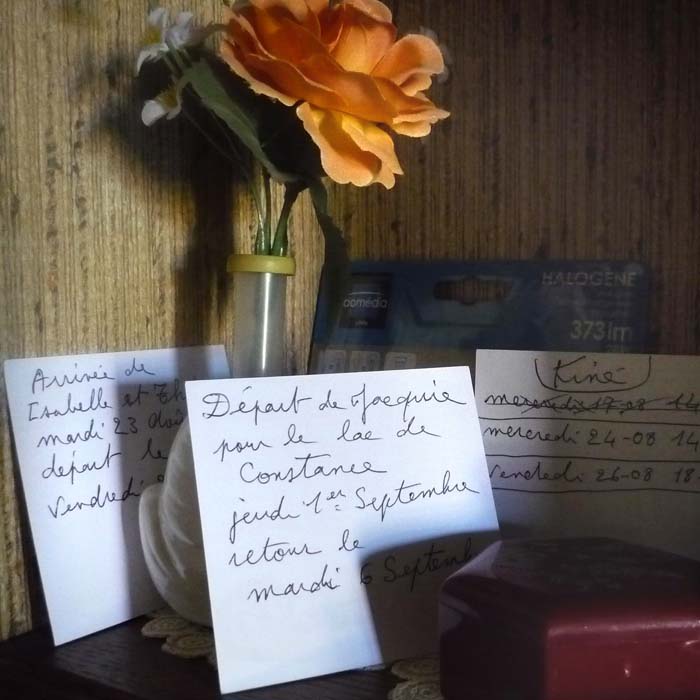 HALOGENE
373lm
Arrivée de
Isabelle et
mardi 23 Août
départ le
Vendredi
Départ de Jacquie
pour le lac de
Constance
jeudi 1er Septembre
retour le
mardi 6 Septemb
Kiné
mercredi 17-08 14
mercredi 24-08 14
Vendredi 26-08 18